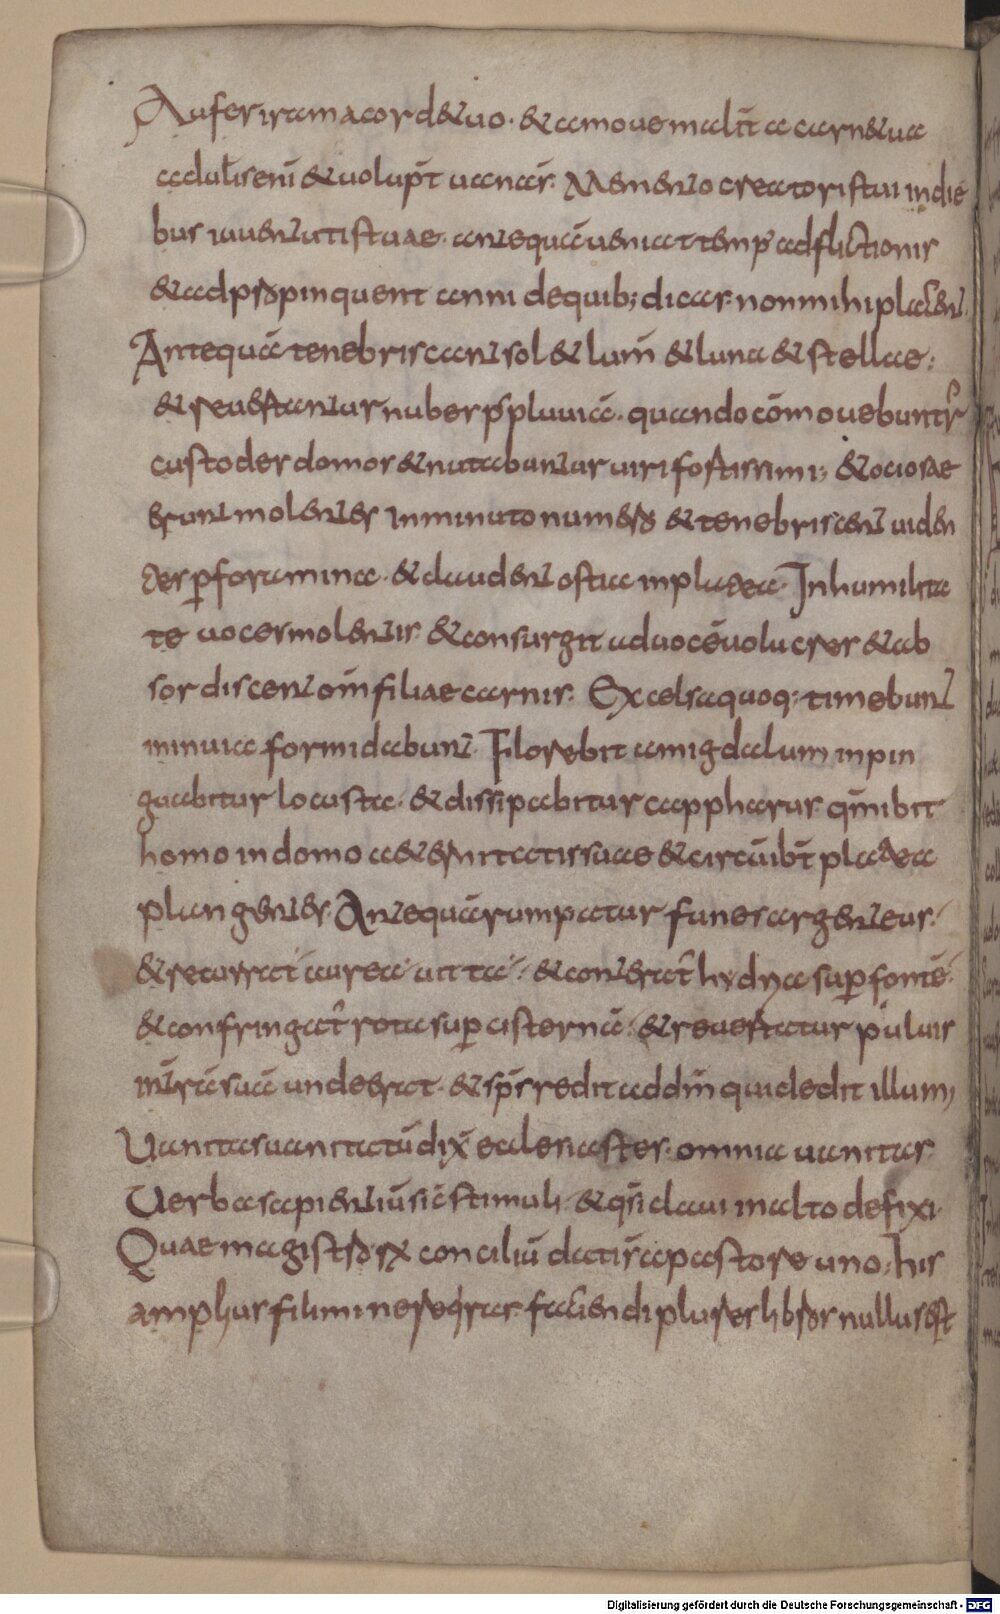 Aufer iram a cord& tuo · & amoue malit̄ a carn& ua
adulisenī & uolup̄t uanas̄ · Memento creatoris tui in die
bus iuuentutis tuae · antequā ueniat temp' adflictionis
& adpropinquent anni de quib; dicas · non mihi placent ·
Antequā tenebriscant sol & lum̄ & luna & stellae :
& reuertantur nubes p' pluuiā · quando cōmouebunt͛
custodes domos & nutabuntur uiri fortissimi ; & ociosae
erunt molentes In minuto numero & tenebriscent uiden
tes ꝑ foramina · & claudent ostia in platea · In humilita
te uoces molentis · & consurgit ad uocē uolucres & ab
sordiscent om̄ filiae carnis · Excelsa quoq; timebunt
in nuia formidabunt · Florebit amigdalum inpin
guabitur locusta · & dissipabitur capparus qm̄ ibit
homo in domo a&ernitatis suae & circūibt̄ platea
plangentes · Antequā rumpatur funes argenteus ·
& recurrat aurea uitta · & conterat͛ hydria suꝑ fontē ·
& confringat͛ rota suꝑ cisternā · & reuertatur puluis
in t̄rā suā unde erat · & sp̄s redit ad dm̄ qui dedit illum ,
Uanitas uanitatū dix̄ ecclesiastes · omnia uanitas ·
Uerba sapientiū sic̄ stimuli · & qsi claui in alto defixi ·
Quae magistrorꝝ conciliū data s̄ a pastore uno ; his
amplius fili mi ne requiras · faciendi plures librorum nullus est